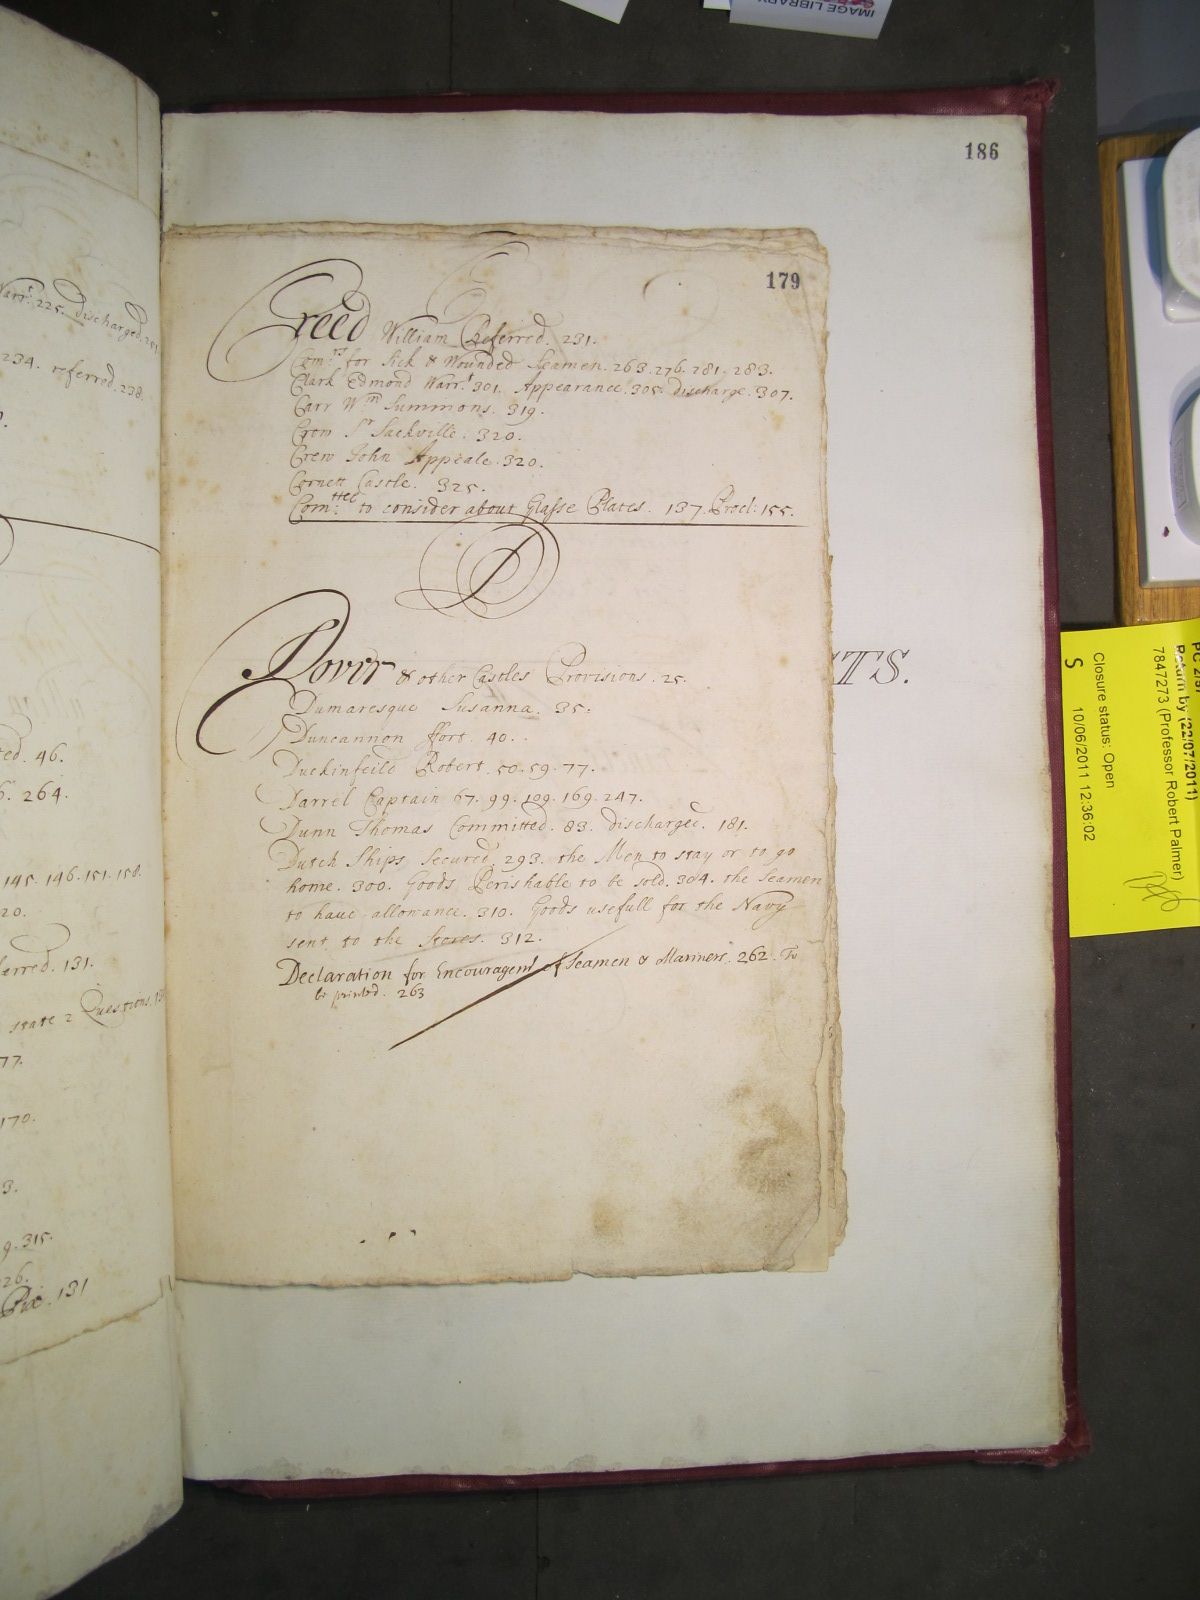 IMAGE LIBRARY
186
179
Warr.t 225. discharged. 251
234. referred. 238.
Creed William Referred. 231.
Com.rs for Sick & Wounded Seamen. 263. 276. 281. 283.
Clark Edmond Warr.t 301. Appearance. 305. discharge. 307.
Carr Wm Summons. 319.
Crow Sr Sackville. 320.
Crew John Appeale. 320.
Cornett Castle. 325.
Com:ttee to consider about Glasse Plates. 137. Procl: 155.
D
Dover & other Castles Provisions. 25.
Dumaresque Susanna. 35.
Duncannon ffort. 40.
Duckinfeild Robert. 50. 59. 77.
Darrel Captain 67. 99. 109. 169. 247.
Dunn Thomas Committed. 83. discharged. 181.
Dutch Ships Secured. 293. the Men to stay or to go
home. 300. Goods Perishable to be sold. 304. the Seamen
to have allowance. 310. Goods usefull for the Navy
sent to the Stores. 312.
Declaration for Encouragemt of Seamen & Mariners. 262. To
be printed. 263
TS.
ed. 46.
264.
145. 146. 151. 158.
20.
ferred. 131.
state 2 Questions.
77.
170.
3.
9. 315.
26.
131
Return by (22/07/2011)
7847273 (Professor Robert Palmer)
Closure status: Open
S 10/06/2011 12:36:02